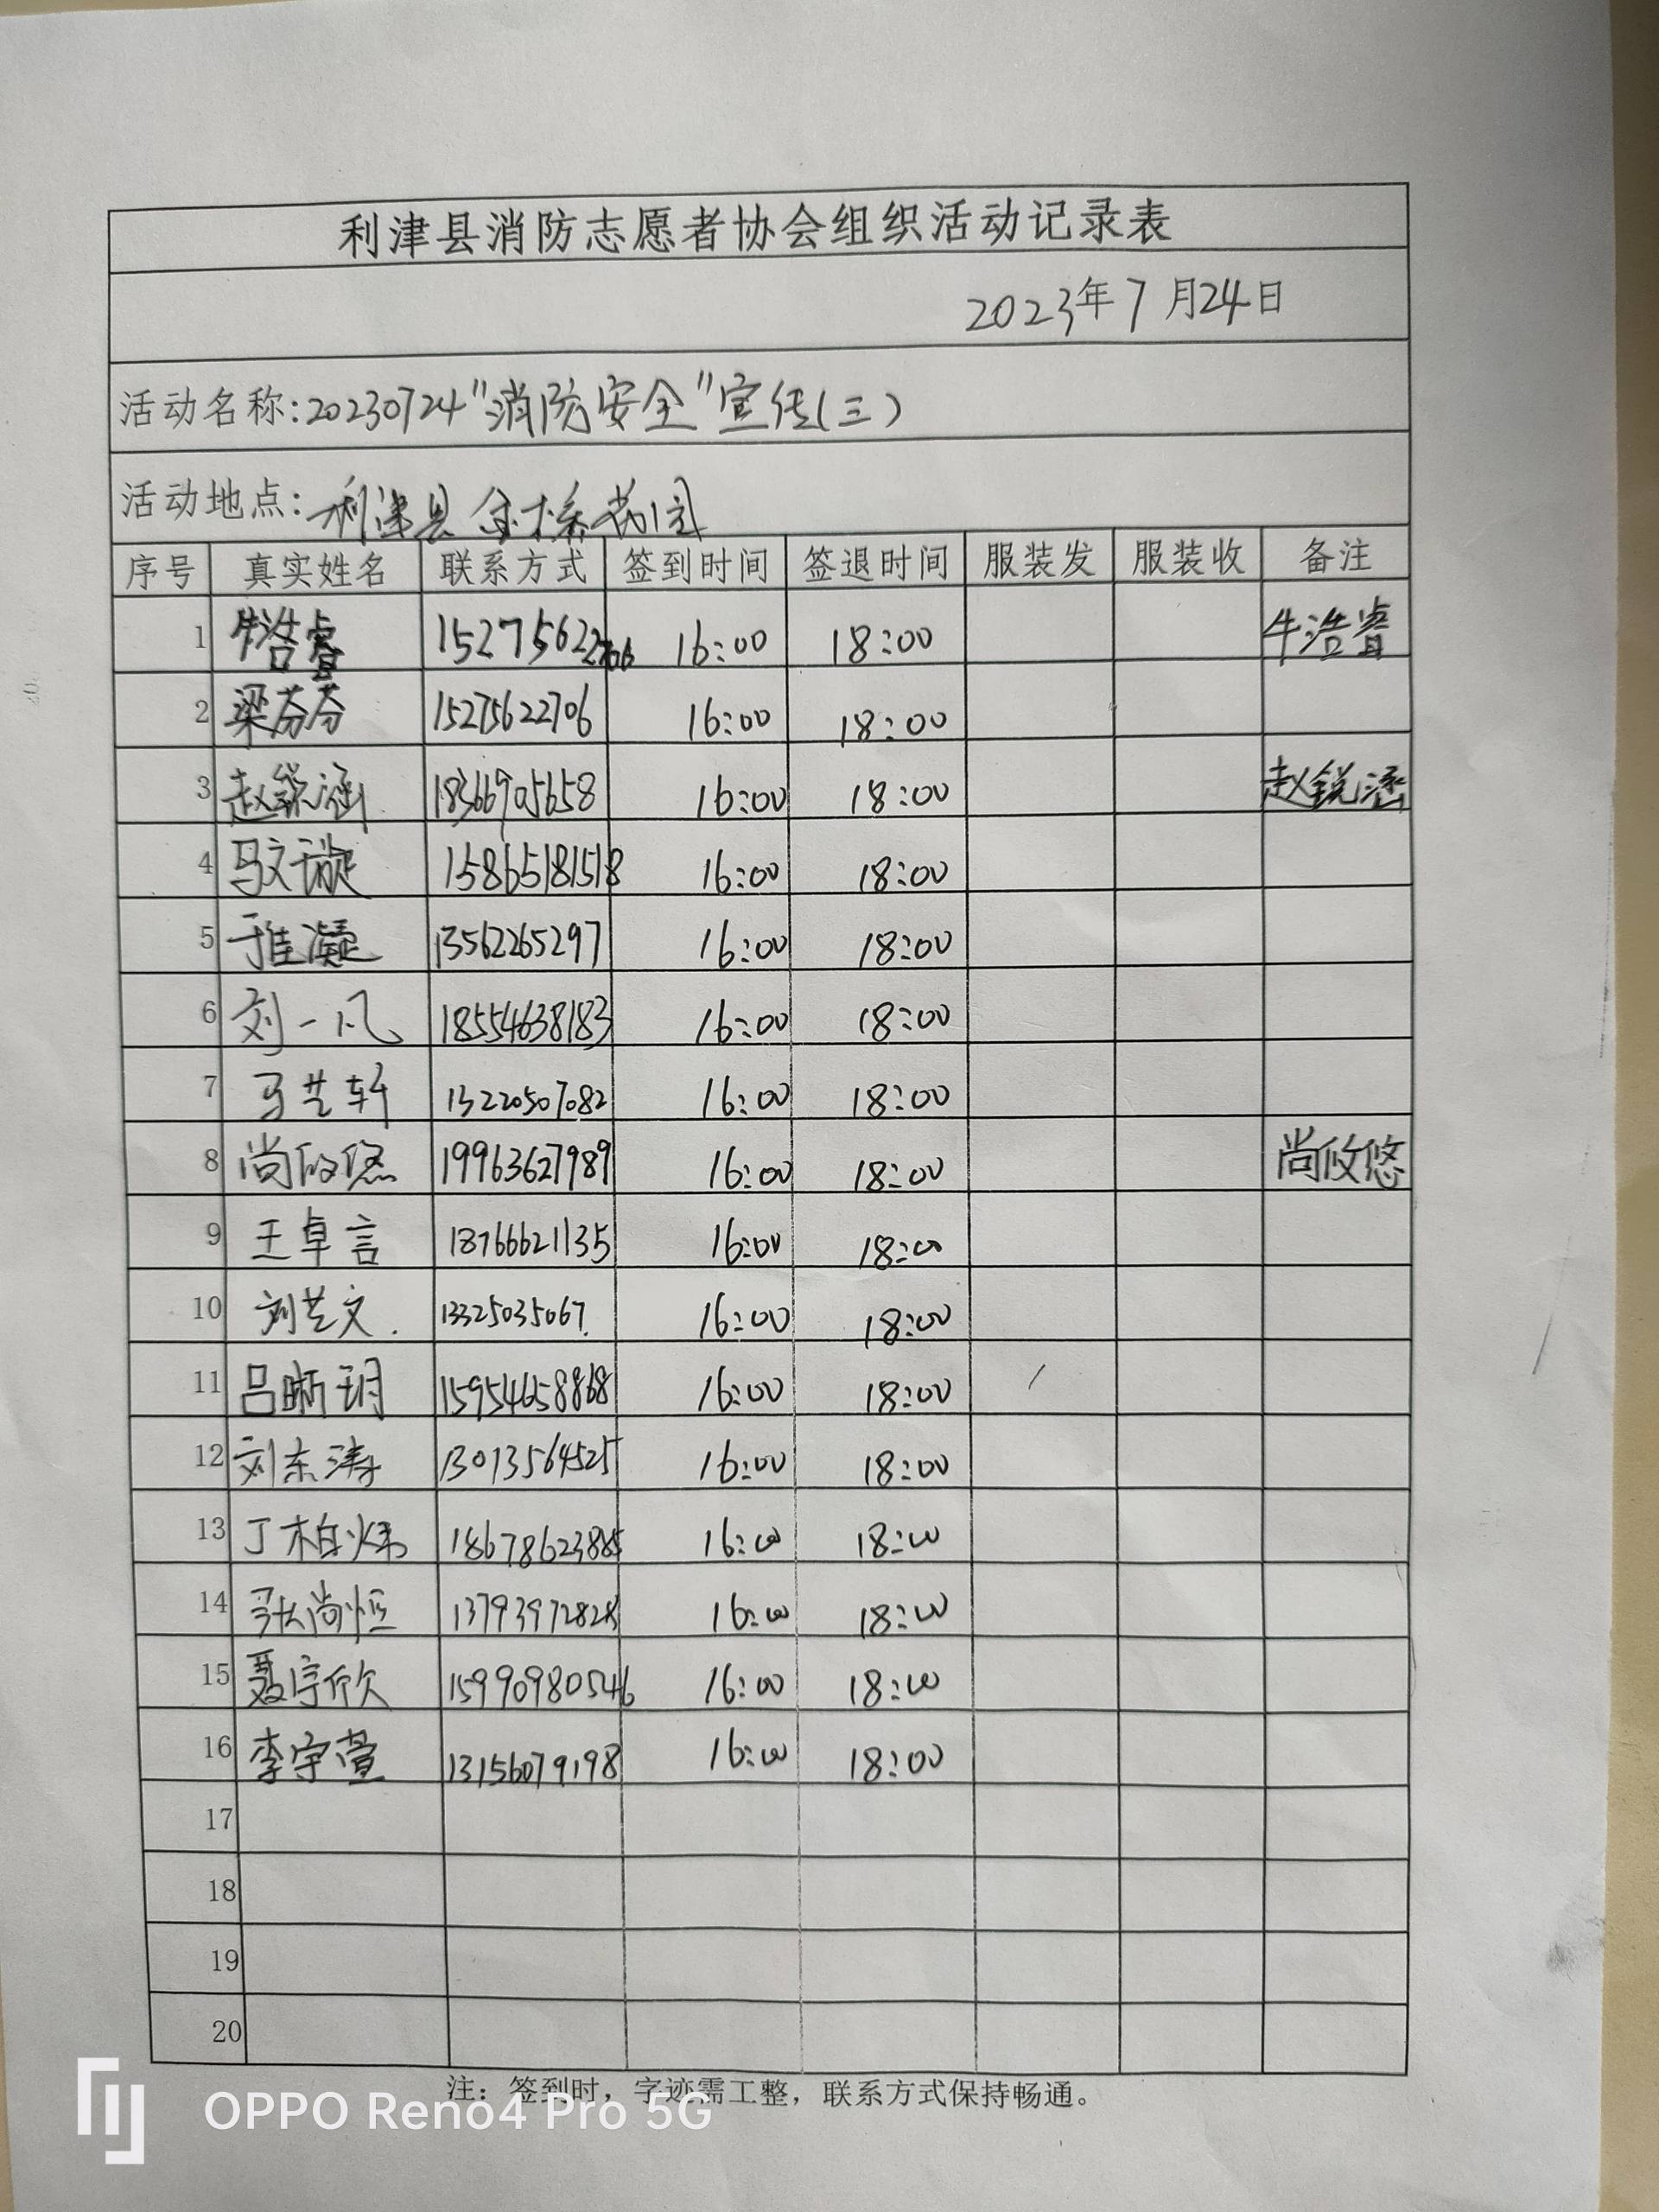 利津县消防志愿者协会组织活动记录表
2023年7月24日
活动名称:20230724"消防安全"宣传(三)
活动地点:利津县金桥花园
序号 真实姓名 联系方式 签到时间 签退时间 服装发 服装收 备注
1 牛浩睿 15275622706 16:00 18:00 牛浩睿
2 梁芬芬 15275622706 16:00 18:00
3 赵锐涵 18366905658 16:00 18:00 赵锐涵
4 马文璇 15865181518 16:00 18:00
5 于佳凝 13562265297 16:00 18:00
6 刘一凡 18554638183 16:00 18:00
7 马艺轩 13220507082 16:00 18:00
8 尚攸悠 19963627989 16:00 18:00 尚攸悠
9 王卓言 18766621135 16:00 18:00
10 刘艺文. 13325035067. 16:00 18:00
11 吕晰玥 15954658868 16:00 18:00
12 刘东涛 13013564525 16:00 18:00
13 丁柏炜 18678623885 16:00 18:00
14 张尚恒 13793972828 16:00 18:00
15 聂宇欣 15990980546 16:00 18:00
16 李宇萱 13156079198 16:00 18:00
17
18
19
20
注：签到时，字迹需工整，联系方式保持畅通。
OPPO Reno4 Pro 5G